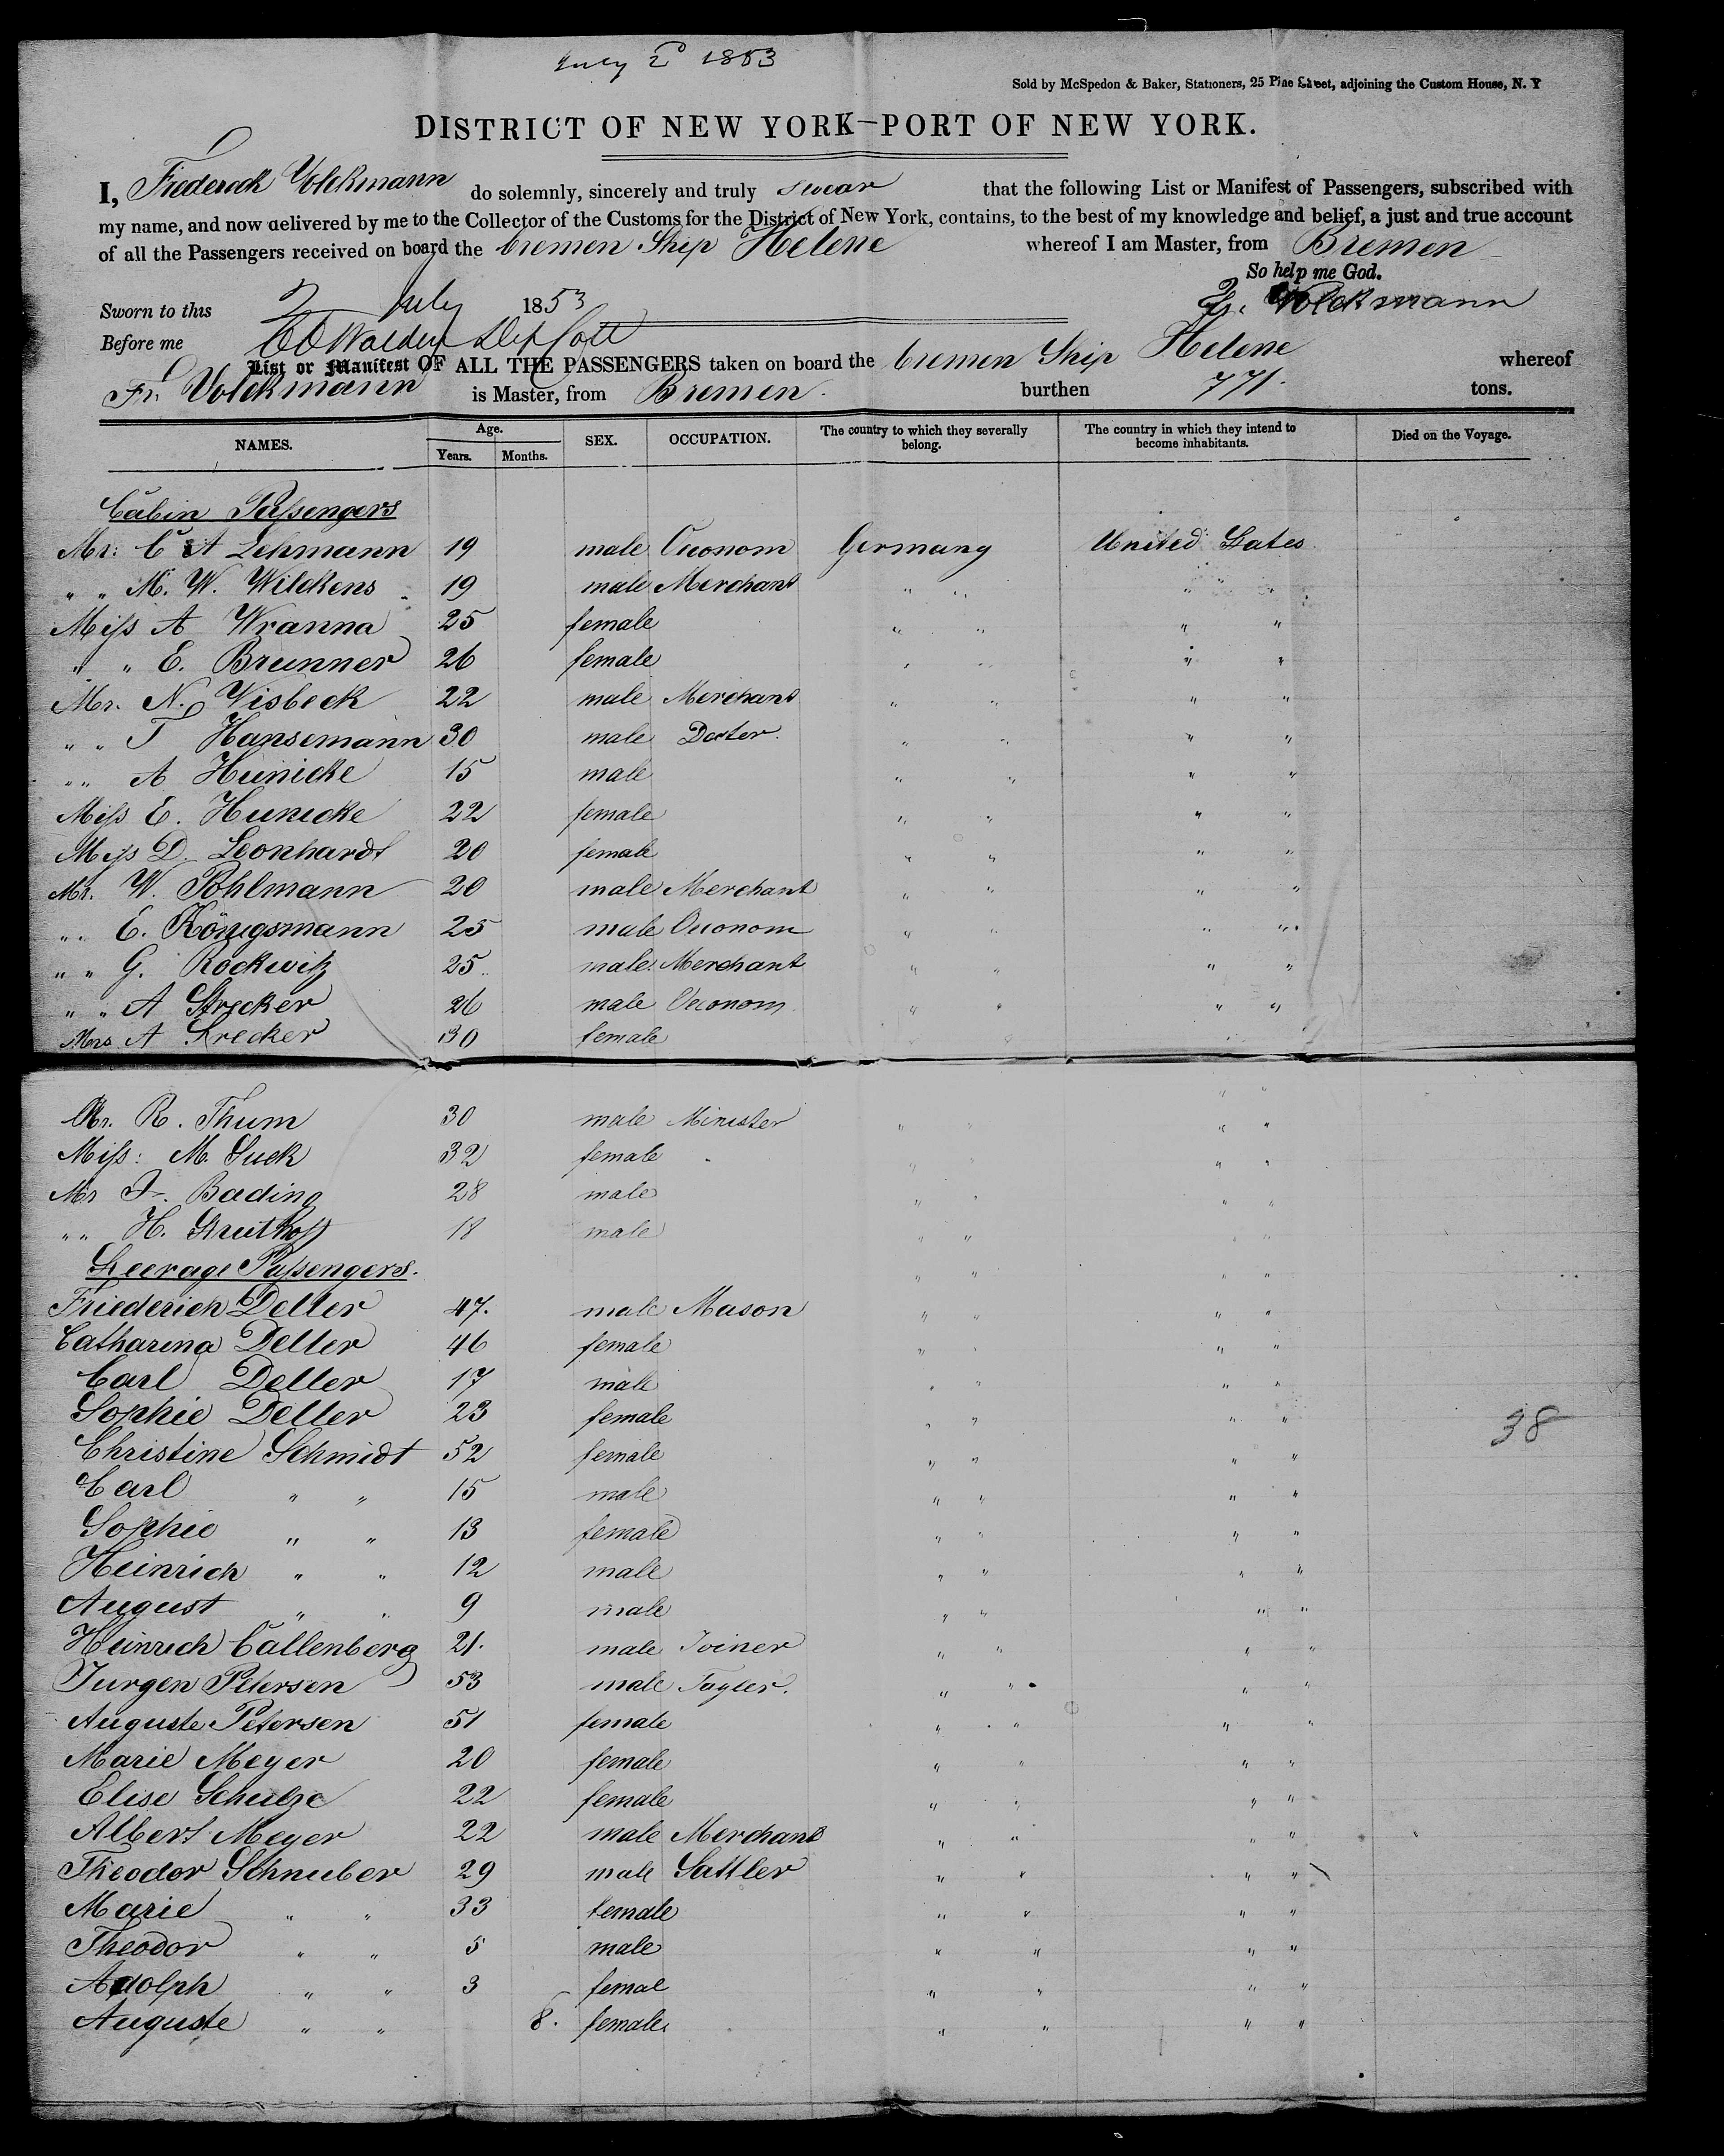 July 2d 1853
Sold by McSpedon & Baker, Stationers, 25 Pine Street, adjoining the Custom House, N. Y
DISTRICT OF NEW YORK—PORT OF NEW YORK.
I, Frederick Volckmann do solemnly, sincerely and truly swear that the following List or Manifest of Passengers, subscribed with
my name, and now delivered by me to the Collector of the Customs for the District of New York, contains, to the best of my knowledge and belief, a just and true account
of all the Passengers received on board the bremen Ship Helene whereof I am Master, from Bremen
So help me God.
Sworn to this 2 July 1853 Fr. Volckmann
Before me
List or Manifest OF ALL THE PASSENGERS taken on board the bremen Ship Helene whereof
Fr. Volckmann is Master, from Bremen. burthen 771. tons.
NAMES. Age. Years. Months. SEX. OCCUPATION. The country to which they severally belong. The country in which they intend to become inhabitants. Died on the Voyage.
Cabin Passengers
Mr: C A Lehmann 19 male Oeconom Germany United States
" " M. W. Wilckens 19 male Merchant " " " "
Miss A Wranna 25 female " " " "
" " E. Brunner 26 female " " " "
Mr. N. Wisbeck 22 male Merchant " " " "
" " T Hansemann 30 male Docter. " " " "
" " A Hunicke 15 male " " " "
Miss E. Hunicke 22 female " " " "
Miss D. Leonhardt 20 female " " " "
Mr. W. Pohlmann 20 male Merchant " " " "
" " E. Königsmann 25 male Oeconom " " " "
" " G. Rockwitz 25 male Merchant " " " "
" " A Strecker 26 male Oeconom " " " "
Mrs A Strecker 30 female
" "
Mr. R. Thum 30 male Minister " " " "
Miss: M. Suck 32 female " " " "
Mr F. Bading 28 male " " " "
" " H. 18 male " " " "
Steerage Passengers. " " " "
Friederich Deller 47. male Mason " " " "
Catharina Deller 46 female " " " "
Carl Deller 17 male " " " "
Sophie Deller 23 female " " " " 38
Christine Schmidt 52 female " " " "
Carl " " 15 male " " " "
Sophie " " 13 female " " " "
Heinrich " " 12 male " " " "
August " " 9 male " " " "
Heinrich Callenberg 21. male Joiner " " " "
Jurgen Petersen 53 male Tayler. " " " "
Auguste Petersen 51 female " " " "
Marie Meyer 20 female " " " "
Elise Schulze 22 female " " " "
Albert Meyer 22 male Merchant " " " "
Theodor Schnuber 29 male Sattler " " " "
Marie " " 33 female " " " "
Theodor " " 5 male " " " "
Adolph " " 3 femal " " " "
Auguste " " 8. female. " " " "